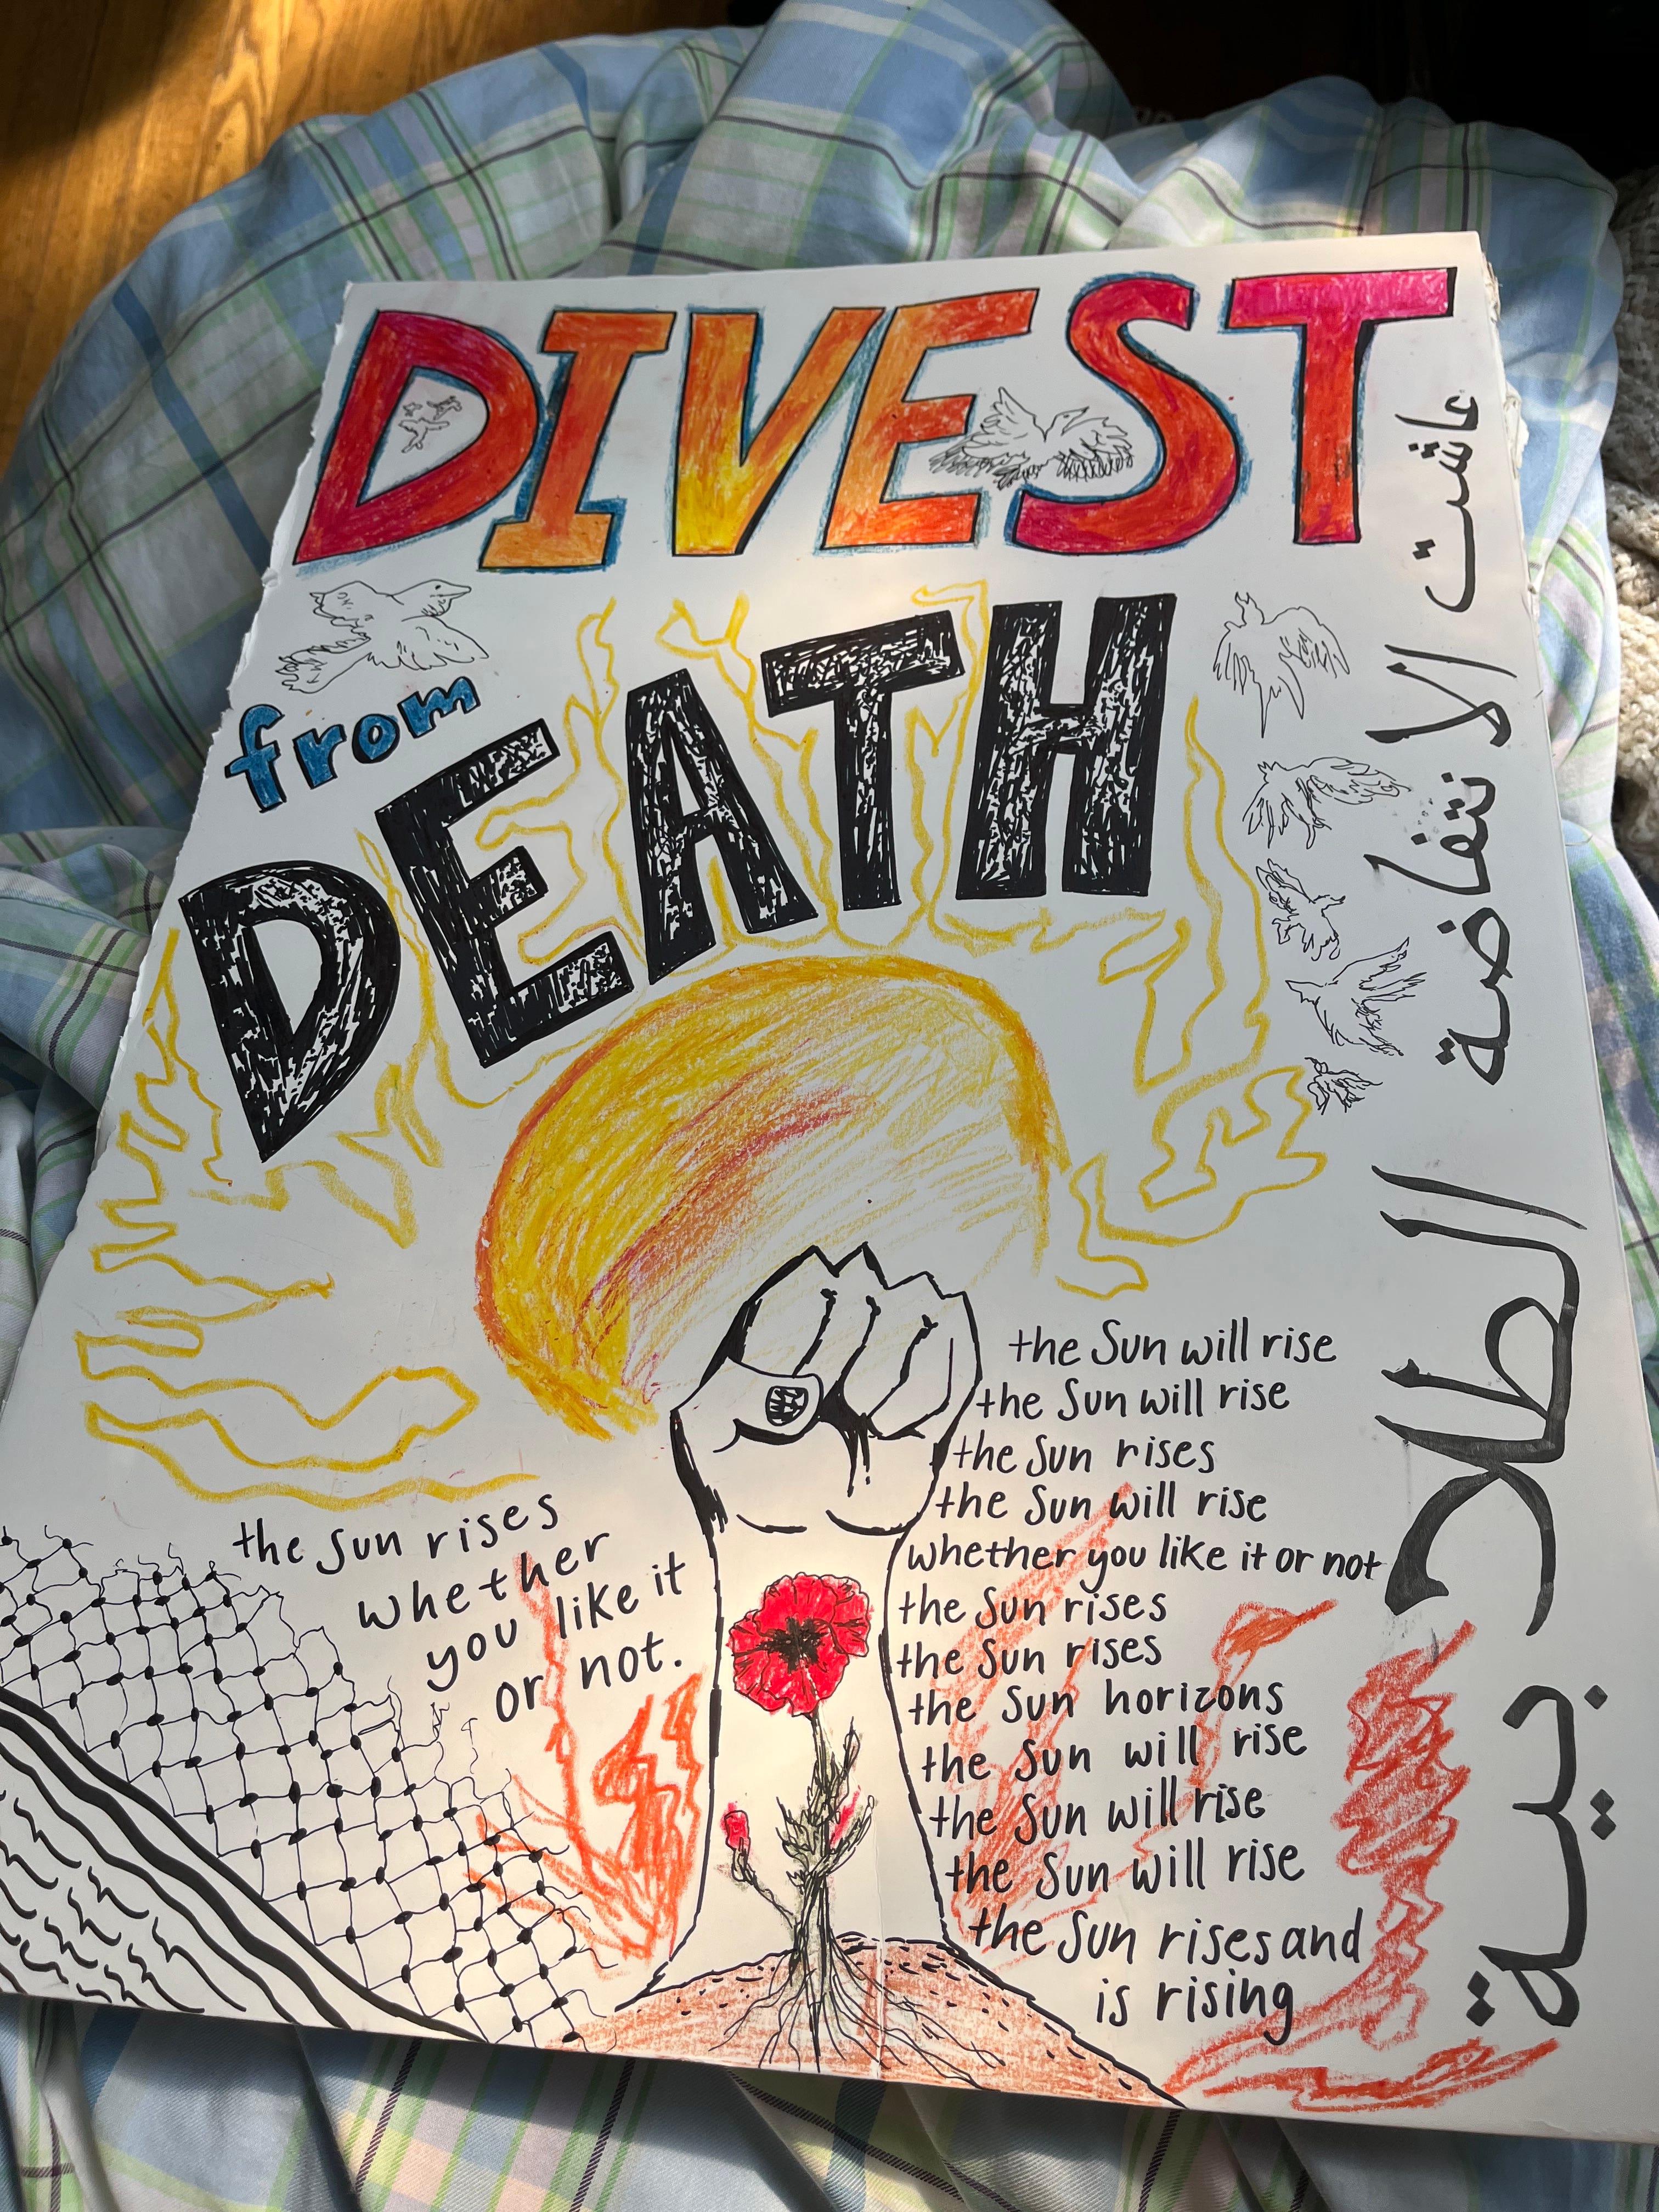 DIVEST
from
DEATH
عاشت الانتفاضة الطلابية
the Sun rises
whether
you like it
or not.
the Sun will rise
the Sun will rise
the Sun rises
the Sun will rise
whether you like it or not
the Sun rises
the Sun rises
the Sun horizons
the Sun will rise
the Sun will rise
the Sun will rise
the Sun rises and
is rising